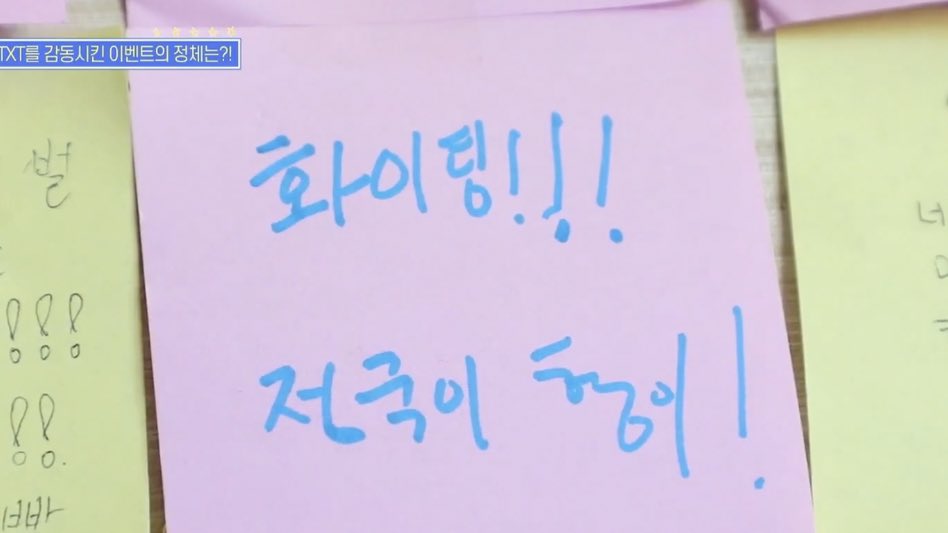 TXT를 감동시킨 이벤트의 정체는?!
벌
화이팅!!!
!!!
전국이 형이!
!!